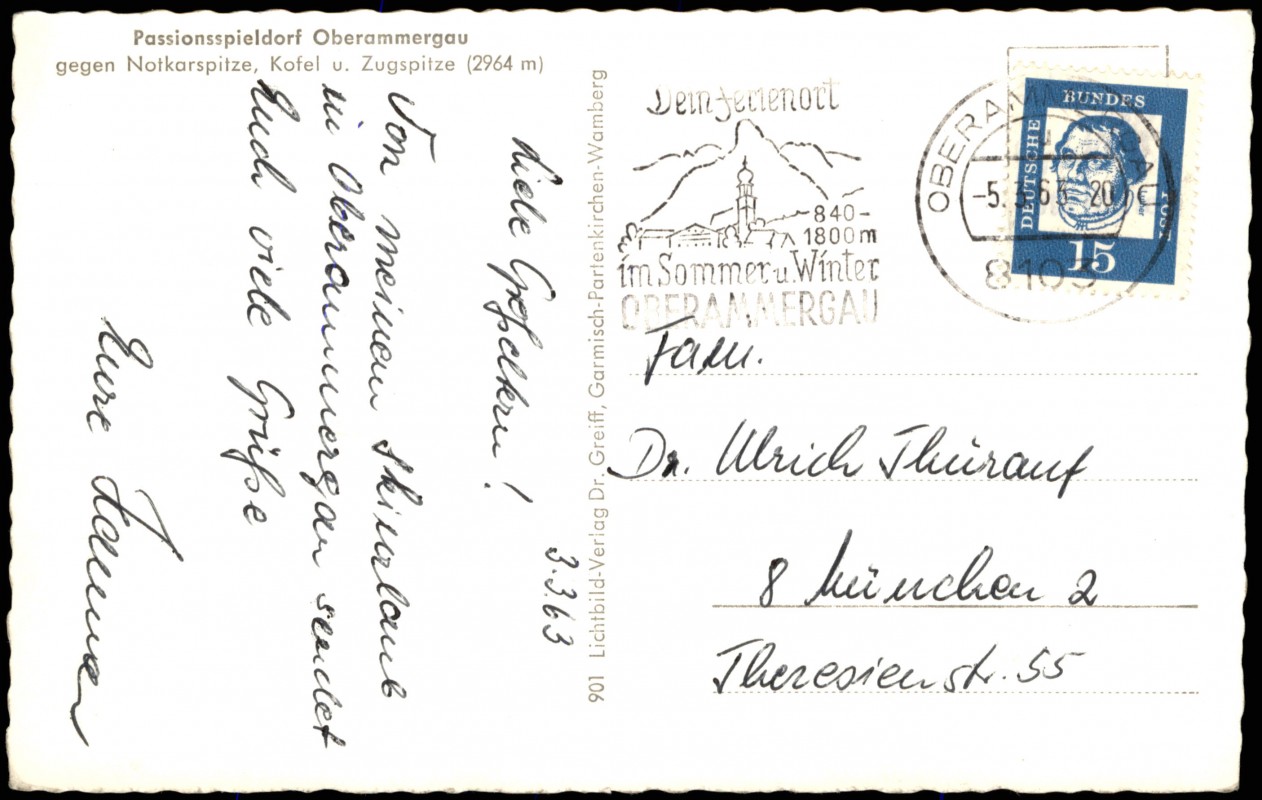 Passionsspieldorf Oberammergau
gegen Notkarspitze, Kofel u. Zugspitze (2964 m)
3.3.63
Liebe
Von meinem Skiurlaub
in Oberammergau sendet
Euch viele Grüße
Eure
901 Lichtbild-Verlag Dr. Greiff, Garmisch-Partenkirchen-Wamberg
Dein Ferienort
840-
1800m
im Sommer u. Winter
OBERAMMERGAU
OBERAMMERGAU
-5.3.63.-20
8103
DEUTSCHE BUNDESPOST
15
Fam.
Dr. Ulrich Thürauf
8 München 2
Theresienstr. 55